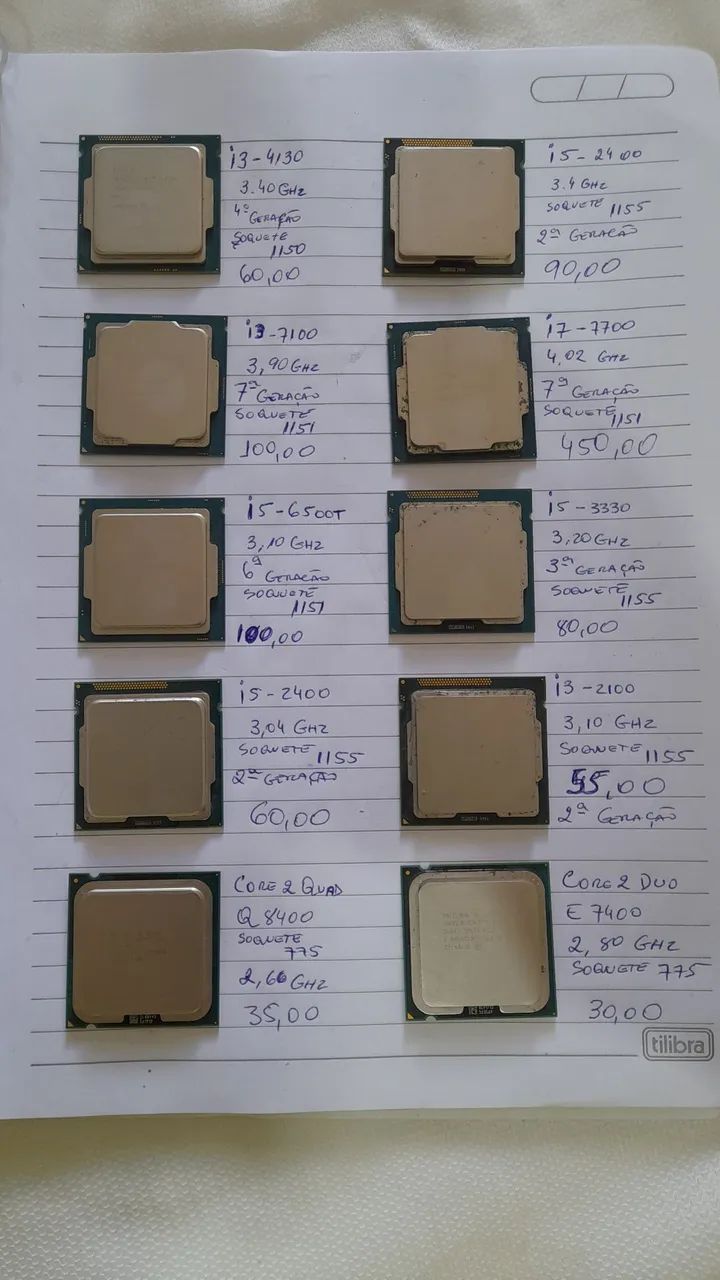 i3-4130
3.40 GHz
4ª GERAÇÃO
SOQUETE
1150
60,00
i5-2400
3.4 GHz
SOQUETE 1155
2ª GERAÇÃO
90,00
i3-7100
3,90 GHz
7ª GERAÇÃO
SOQUETE
1151
100,00
i7-7700
4,02 GHz
7ª GERAÇÃO
SOQUETE
1151
450,00
i5-6500T
3,10 GHz
6ª GERAÇÃO
SOQUETE
1151
100,00
i5-3330
3,20 GHz
3ª GERAÇÃO
SOQUETE 1155
80,00
i5-2400
3,04 GHz
SOQUETE 1155
2ª GERAÇÃO
60,00
i3-2100
3,10 GHz
SOQUETE 1155
55,00
2ª GERAÇÃO
CORE 2 QUAD
Q 8400
SOQUETE
775
2,66 GHz
35,00
CORE 2 DUO
E 7400
2,80 GHz
SOQUETE 775
30,00
tilibra